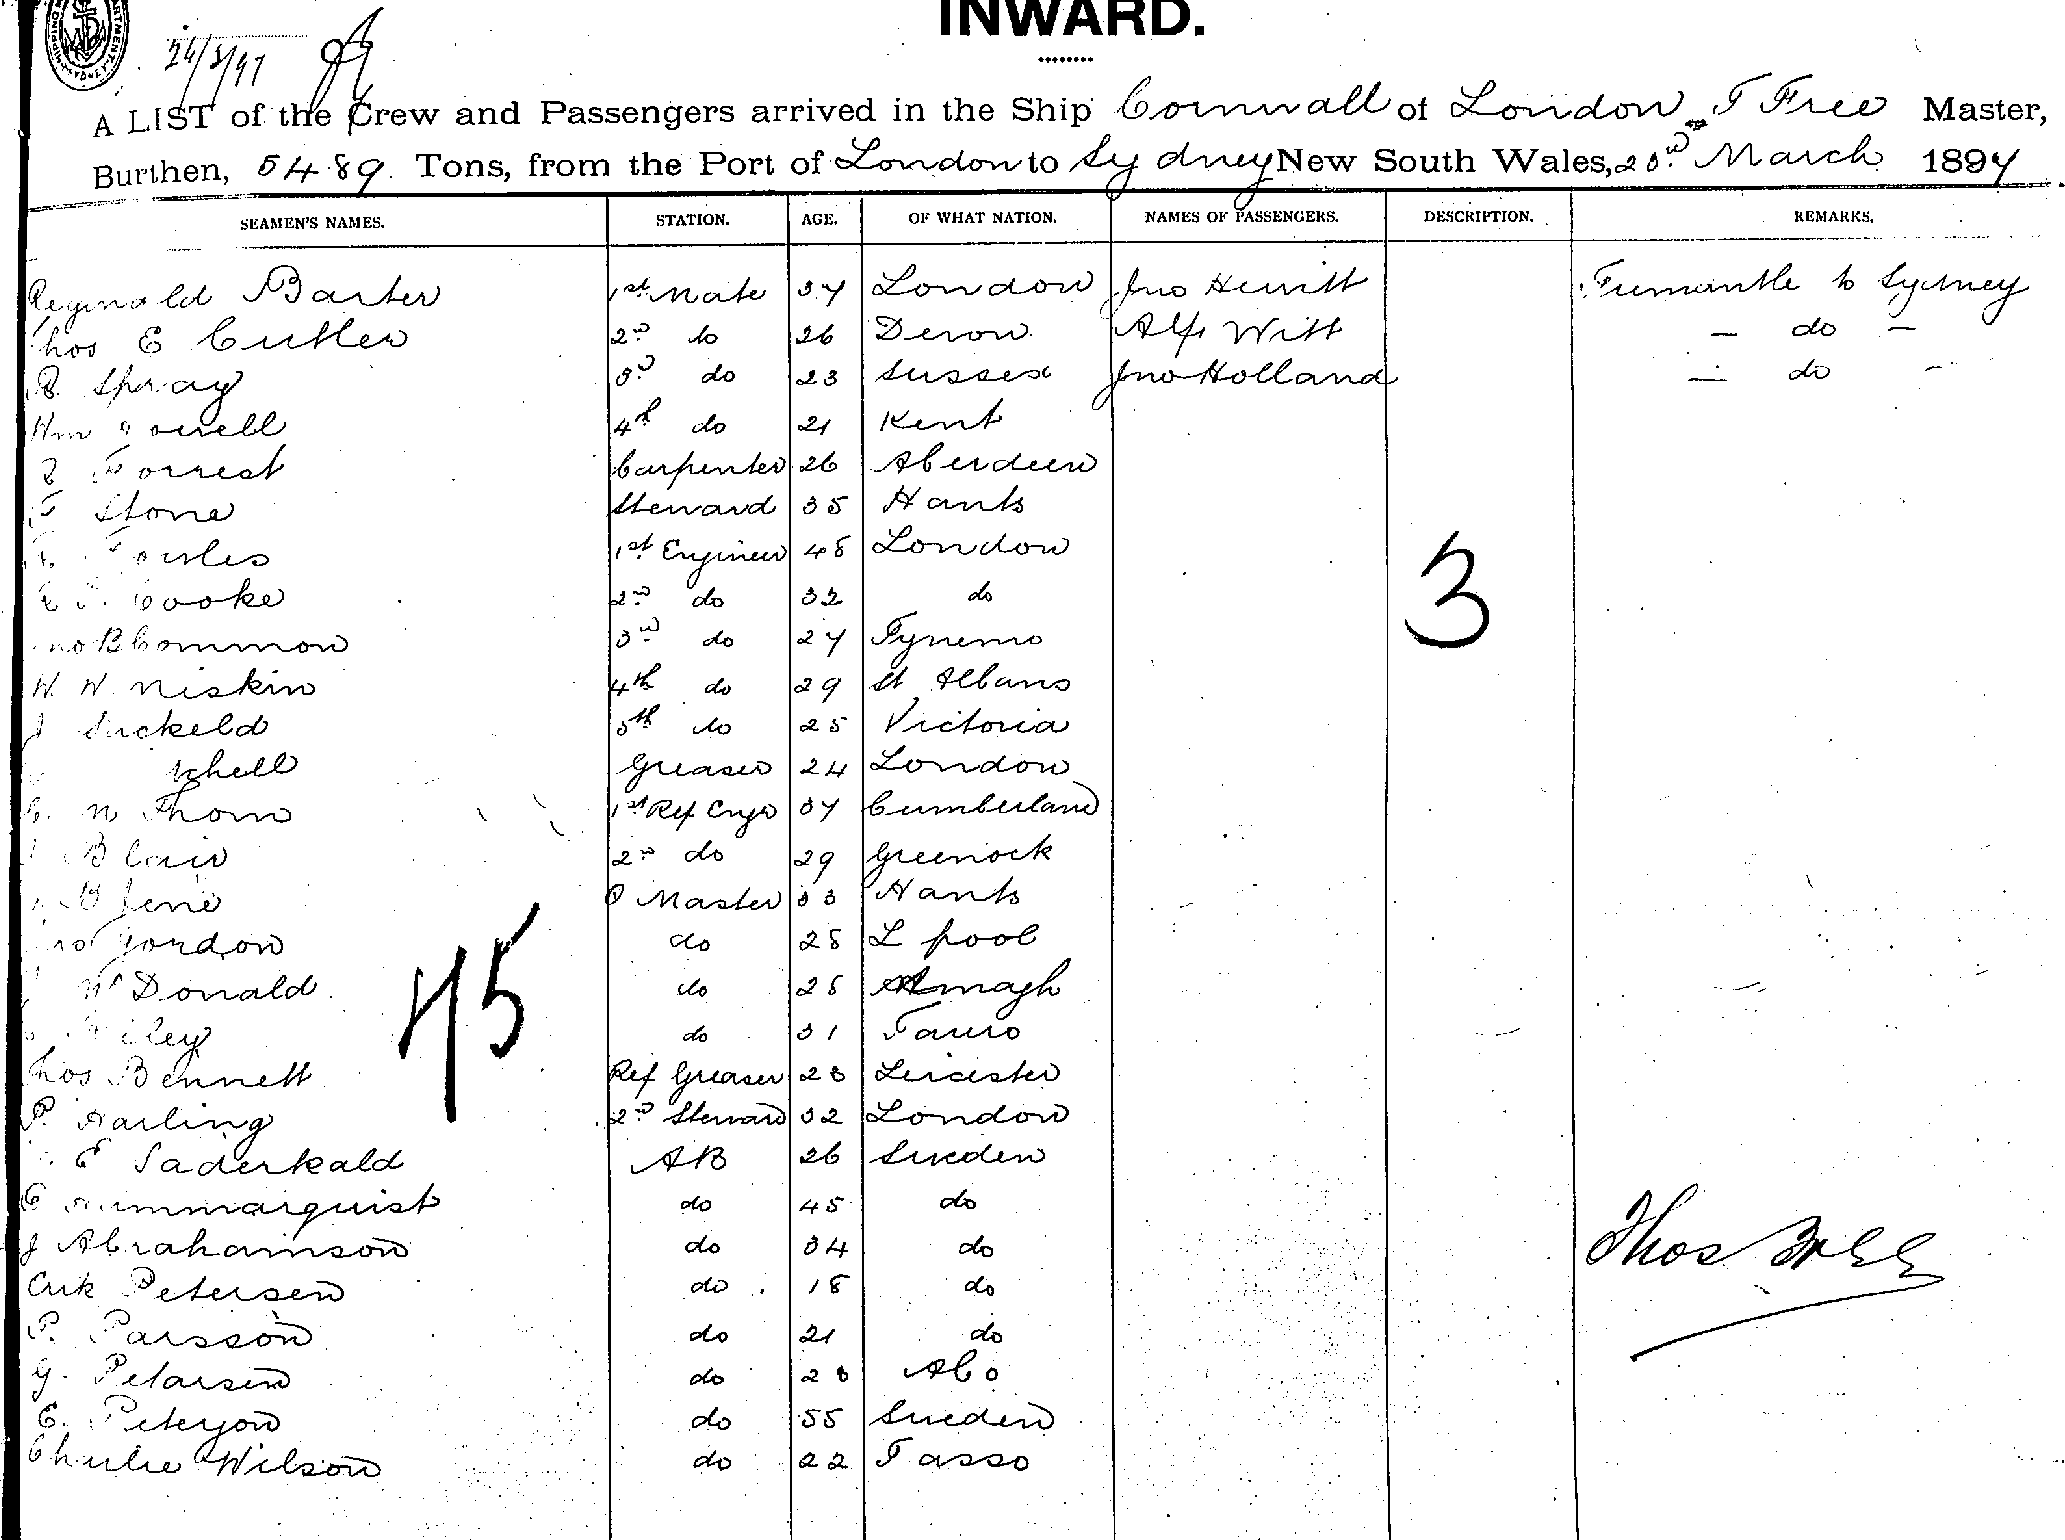 INWARD.
A LIST of the Crew and Passengers arrived in the Ship Cornwall of London T Free Master,
Burthen, 5489 Tons, from the Port of London to Sydney New South Wales, 23rd March 1897
SEAMEN'S NAMES. STATION. AGE. OF WHAT NATION. NAMES OF PASSENGERS. DESCRIPTION. REMARKS.
Reginald Barter 1st Mate 37 London Jno Hewitt Fremantle to Sydney
Thos E Cutler 2nd do 26 Devon Alf Witt — do —
Spray 3rd do 23 Sussex Jno Holland — do —
Wm 4th do 21 Kent
Forrest Carpenter 26 Aberdeen
F Stone Steward 35 Hants
1st Engineer 48 London
Cooke 2nd do 32 do
Jno B Common 3rd do 27 Tynemo
W. W. Niskin 4th do 29 St Albans
J Suckeld 5th do 25 Victoria
Greaser 24 London
N Thom 1st Ref Engr 37 Cumberland
Blair 2nd do 29 Greenock
Master 33 Hants
Gordon do 28 L pool
McDonald do 28 Armagh
do 31
Thos Bennett Ref Greaser 23 Leicester
P. Harling 2nd Steward 32 London
E Saderkald AB 26 Sweden
Hummarquist do 45 do
J Abrahamson do 34 do
Erik Petersen do 18 do
P. Parsson do 21 do
G. Petarsen do 28 Abo
E. Peterson do 55 Sweden
Charlie Wilson do 22 Tasso
3
45
Thos